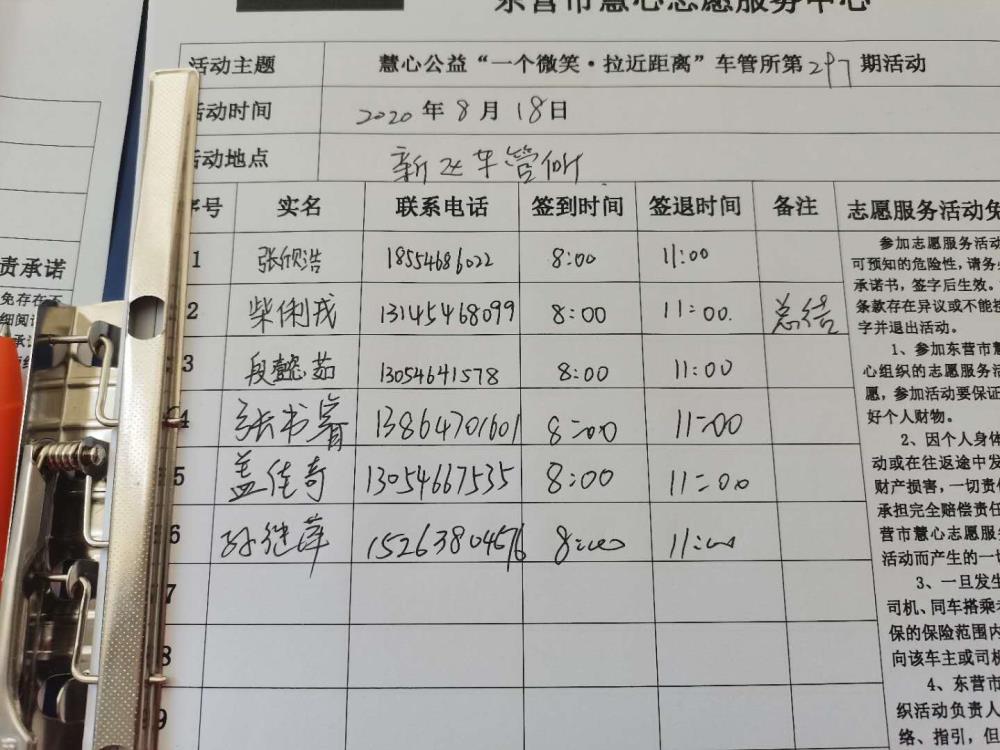 东营市慧心志愿服务中心
活动主题 慧心公益“一个微笑·拉近距离”车管所第297期活动
活动时间 2020年8月18日
活动地点 新区车管所
序号 实名 联系电话 签到时间 签退时间 备注 志愿服务活动免
1 张欣浩 18554686022 8:00 11:00
2 柴俐戎 13145468099 8:00 11:00. 总结
3 段懿茹 13054641578 8:00 11:00
4 张书睿 13864701601 8:00 11:00
5 盖佳奇 13054667535 8:00 11:00
6 孙继萍 15263804576 8:00 11:00
7
8
9
参加志愿服务活动
可预知的危险性，请务
承诺书，签字后生效。
条款存在异议或不能接
字并退出活动。
1、参加东营市慧
心组织的志愿服务活
愿，参加活动要保证
好个人财物。
2、因个人身体
动或在往返途中发
财产损害，一切责任
承担完全赔偿责任
营市慧心志愿服务
活动而产生的一切
3、一旦发生
司机、同车搭乘者
保的保险范围内
向该车主或司机
4、东营市
织活动负责人
络、指引，但
责承诺
免存在不
细阅